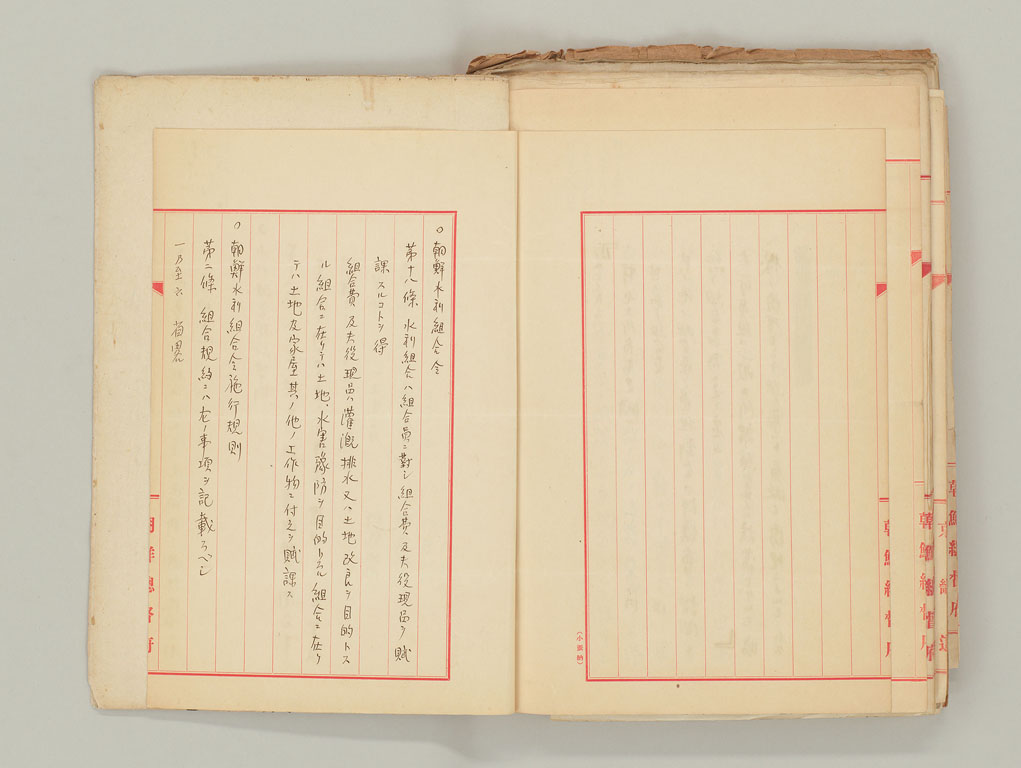 ○ 朝鮮水利組合令
第十八條 水利組合ハ組合員ニ對シ組合費及夫役現品ヲ賦
課スルコトヲ得
組合費及夫役現品ハ灌漑排水又ハ土地改良ヲ目的トス
ル組合ニ在リテハ土地、水害豫防ヲ目的トスル組合ニ在リ
テハ土地及家屋其ノ他ノ工作物ニ付之ヲ賦課ス
○ 朝鮮水利組合令施行規則
第二條 組合規約ニハ左ノ事項ヲ記載スベシ
一乃至六 省畧
朝鮮總督府
朝鮮總督府
朝鮮總督府
朝鮮總督府